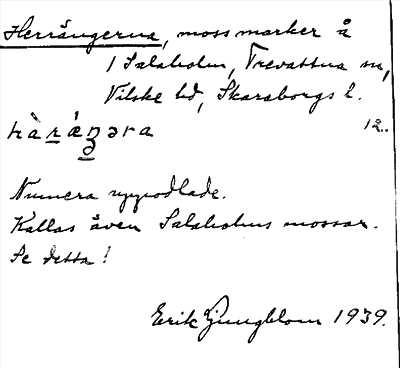 Herrängerna, mossmarker å
1 Salaholm, Trevattna sn,
Vilske hd, Skaraborgs l.
hàṟáŋəra 12..
Numera uppodlade.
Kallas även Salaholms mossar.
Se detta!
Erik Ljungblom 1939.